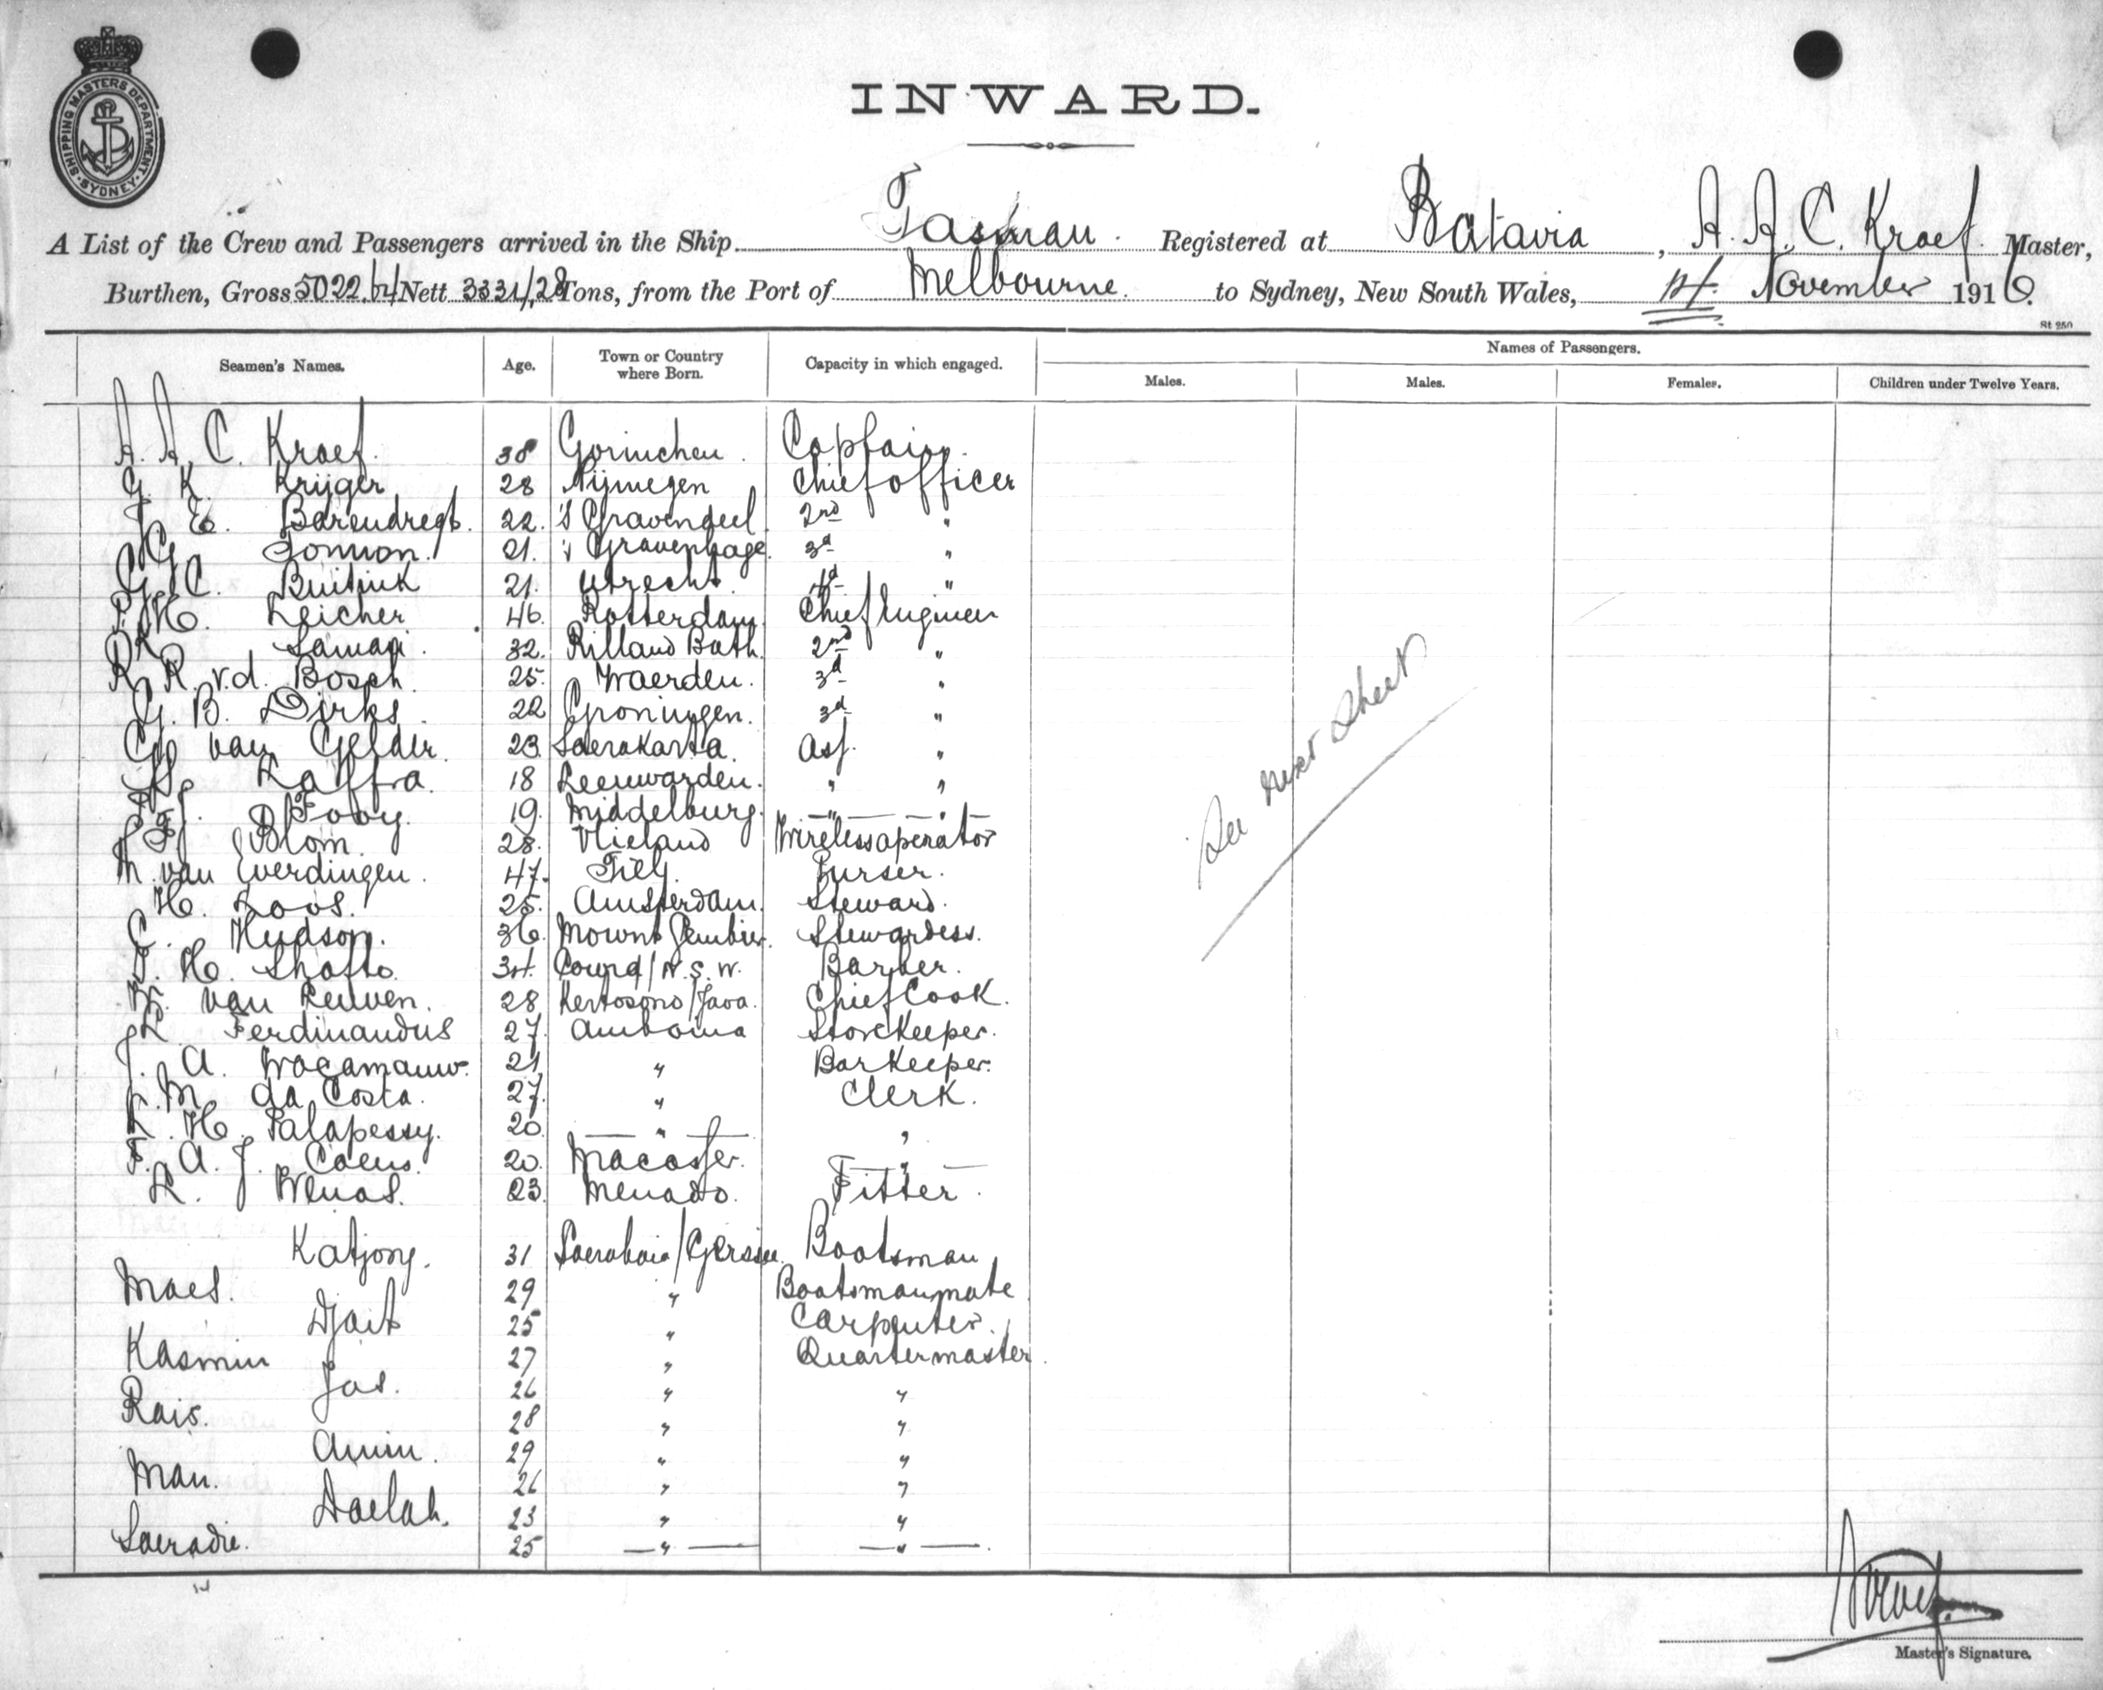 SHIPPING MASTERS DEPARTMENT. SYDNEY.
INWARD.
A List of the Crew and Passengers arrived in the Ship Tasman. Registered at Batavia, A. A. C. Kraef. Master,
Burthen, Gross 5022,64 Nett 3331,28 Tons, from the Port of Melbourne. to Sydney, New South Wales, November 1916.
St 250
Seamen's Names. Age. Town or Country where Born. Capacity in which engaged. Names of Passengers.
Males. Males. Females. Children under Twelve Years.
A. A. C. Kraef. 38 Gorinchem. Captain.
G. K. Krijger 28 Nijmegen Chief officer
J. E. Barendregt. 22. 's Gravendeel 2nd "
G. 21. 's Gravenhage. 3d "
G. C. Buitink 21. Utrecht. 4d "
P. H. Leicher 46. Rotterdam Chief Engineer
32. Rilland Bath. 2nd "
R. R. v.d. Bosch. 25. Woerden. 3d "
G. B. Dirks. 22 Groningen. 3d "
G. van Gelder. 23. Soerakarta. Ass. "
Kaffra. 18 Leeuwarden. " "
Fooy. 19. Middelburg. " "
J. F. Blom. 28. Vlieland Wirelessoperator
M. van Everdingen. 47. Tiel. Purser.
H. Loos. 25. Amsterdam. Steward.
C. Hudson. 36. Mount Gambier. Stewardess.
T. H. Shafto. 34. Cowra/N.S.W. Barber.
W. van Leuven. 28 Kertosono/Java. Chief Cook.
J. L. Ferdinandus 27. Amboina Storekeeper.
J. A. Wacamauw. 21 " Barkeeper.
J. M. da Costa. 27. " Clerk.
L. H. Palapessy. 20. " "
F. A. J. Coens. 20. Macasser. "
L. Wenas. 23. Menado. Fitter.
Katjong. 31 Soerabaia/Gersee. Bootsman
Maes. 29 " Bootsmanmate
Djait 25 " Carpenter.
Kasmin 27 " Quartermaster.
Jas. 26 " "
Rais. 28 " "
Amin. 29 " "
Man. 26 " "
Daelah. 23 " "
Soeradie. 25 " "
See next sheet
Kraef.
Master's Signature.